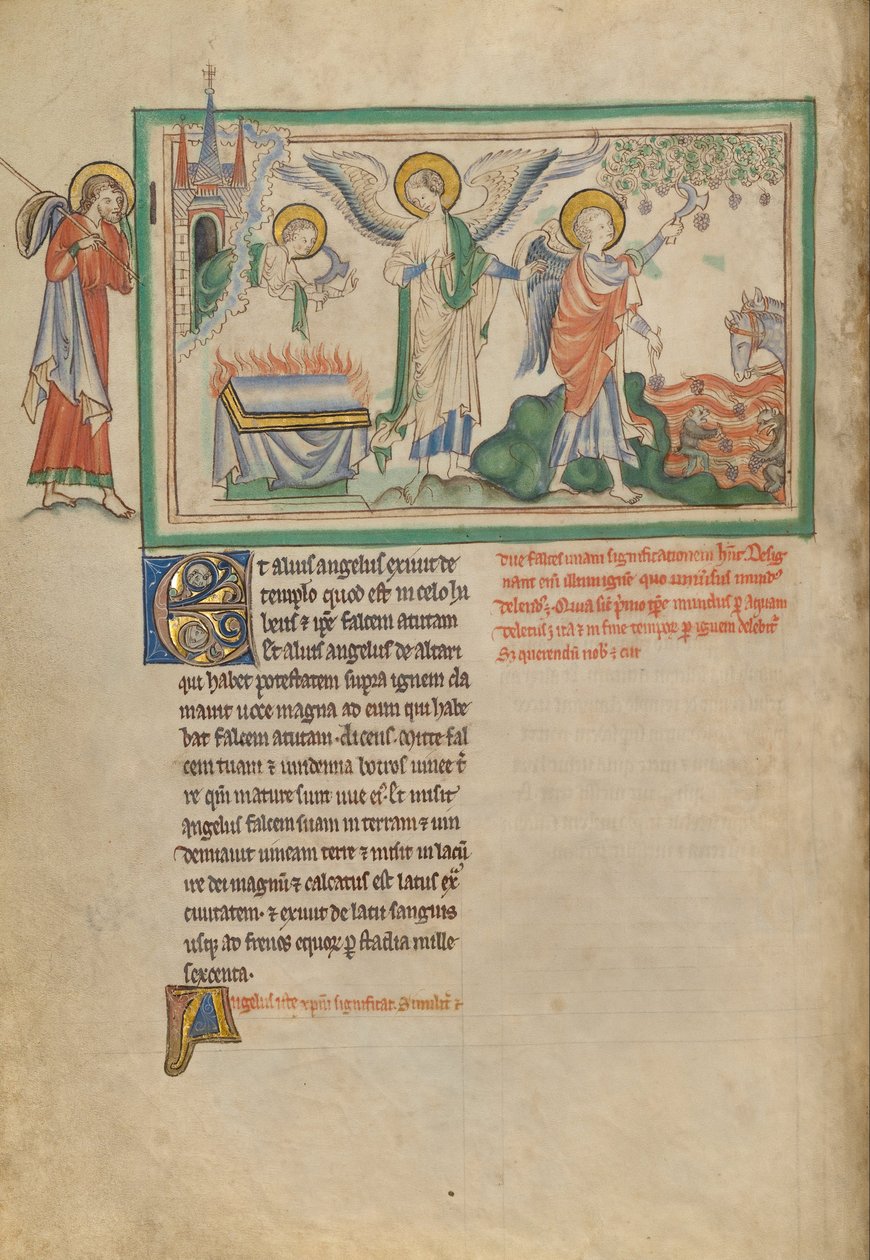 Et alius angelus exiuit de
templo quod est in celo ha
bens ⁊ ip̄e falcem acutam
Et alius angelus de altari
qui habet potestatem supra ignem cla
mauit uoce magna ad eum qui habe
bat falcem acutam· dicens· Mitte fal
cem tuam ⁊ uindemia botros uinee t̄
re qm̄ mature sunt uue eiꝰ· Et misit
angelus falcem suam in terram ⁊ uin
demiauit uineam terre ⁊ misit in lacū
ire dei magnū ⁊ calcatus est lacus ext̄
ciuitatem· ⁊ exiuit de lacu sanguis
usqꝫ ad frenos equoꝝ ꝑ stadia mille
sexcenta·
Angelus iste xp̄m significat. Similit̄ ⁊
due falces unam significationem hn̄t. Desig
nant eni illum ignē quo uniuersus mundꝰ
delendꝰ ē. Quia sic̄ primo tꝑe mundus ꝑ aquam
deletus ē ita ⁊ in fine tempoꝝ ꝑ ignem delebit̄
Sꝫ querendū nob̄ ē cur